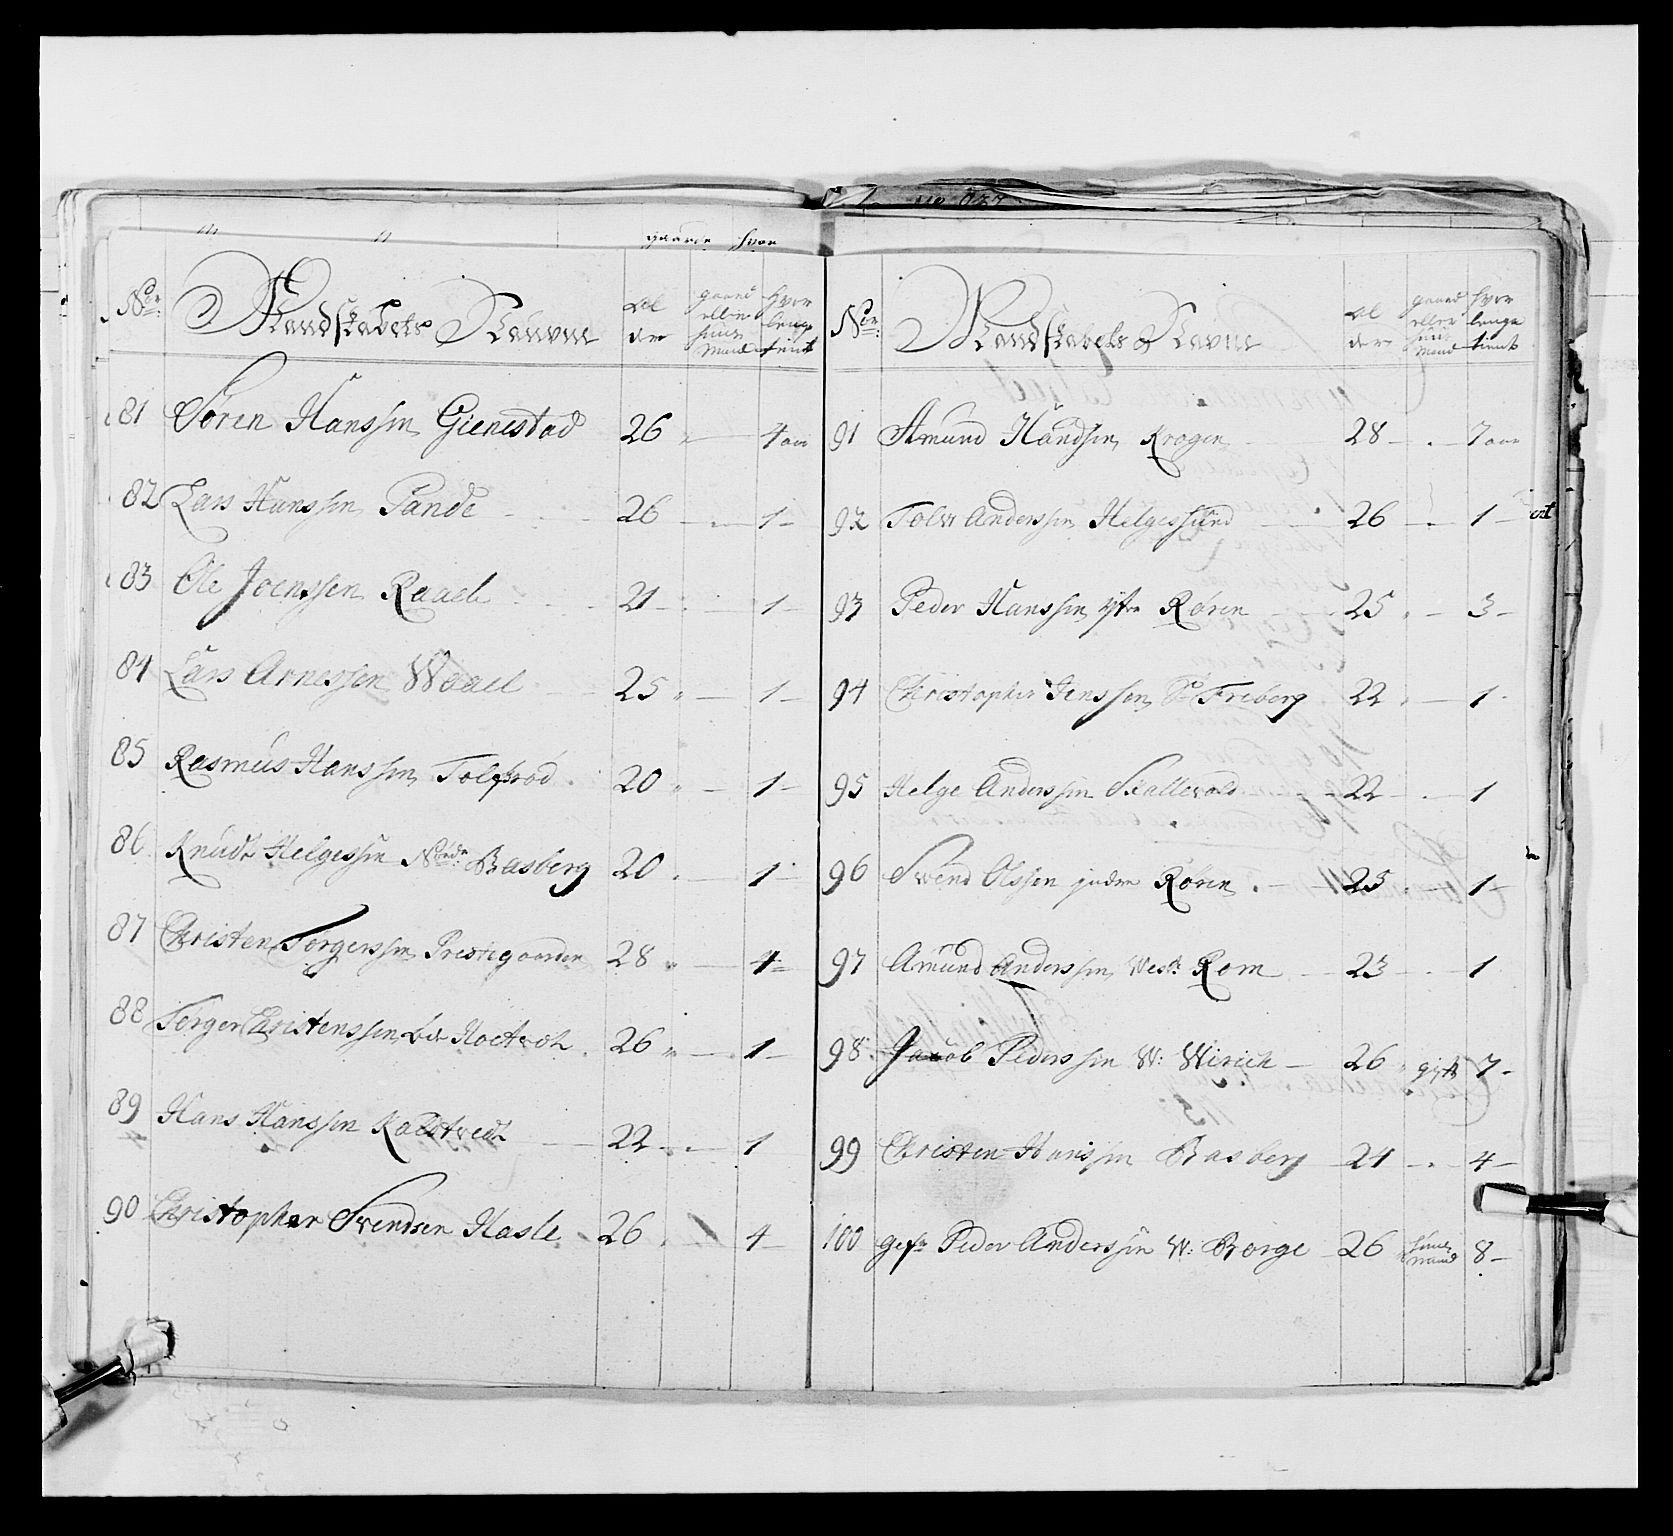 Nor: Mandskabets Navne Al der gaard eller huus Mand hvor lenge tient
81 Søren Hanssen Gienestad 26 4 aar
82 Lars Hanssen Pande 26 1
83 Ole Joenssen Raaek 21 1
84 Lars Arnessen Waael 25 1
85 Rasmus Hanssen Tolfsrød 20 1
86 Knud Helgessen Nordr: Basberg 20 1
87 Christen Torgerssen Prestegaarden 28 4
88 Torger Christenssen 26 1
89 Hans Hanssen Kalstvedt 22 1
90 Christopher Svendsen Hasle 26 4
Nor: Mandskabets Navne Al der gaard eller huus Mand hvor lenge tient
91 Amund Handsen Krogen 28 7 aar
92 Tolv Anderssen Helgessund 26 1
93 Peder Hanssen ytre Røren 25 3
94 Christopher Jenssen Freberg 22 1
95 Helge Anderssen Skallevold 22 1
96 Svend Olssen indre Røren 25 1
97 Amund Anderssen West: Rom 23 1
98 Jacob Pederssen W: Wirich 26 gift 7
99 Christen Hanssen Basberg 24 4
100 gefr Peder Anderssen W: Borge 26 huus mand 8